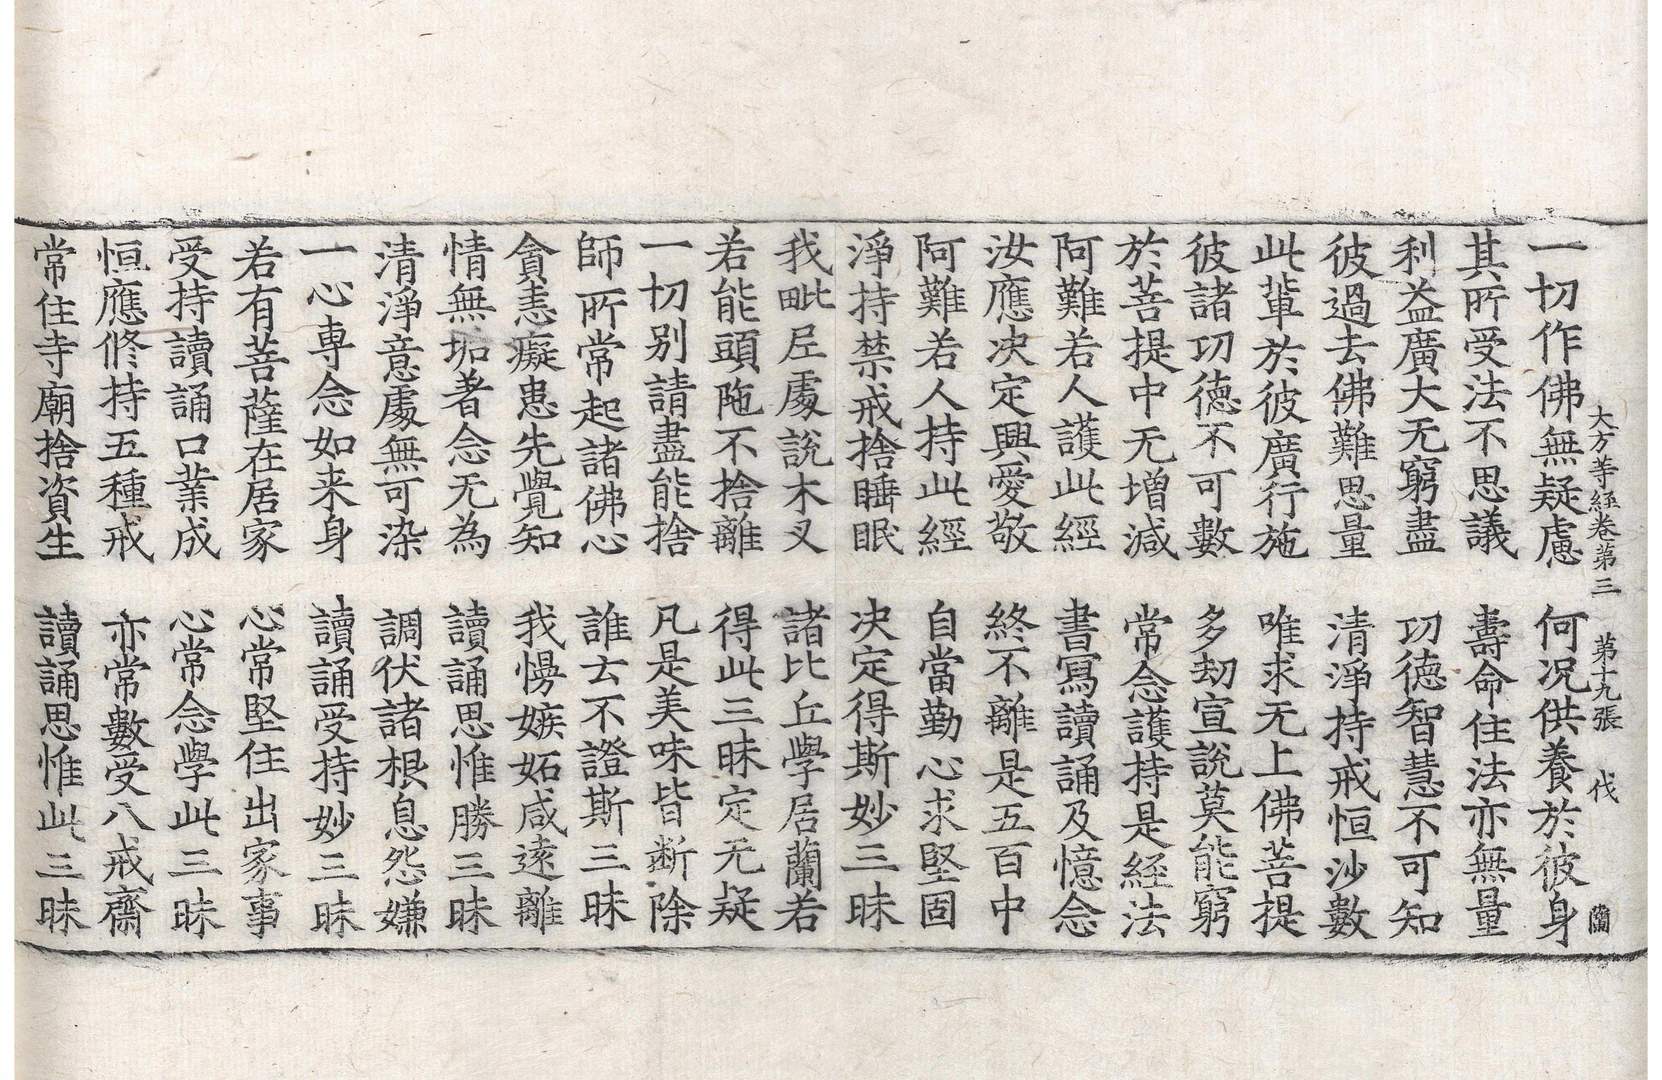 大方等大集經卷第三 第十九張 伐 蘭
一切作佛無疑慮 何況供養於彼身
其所受法不思議 壽命住法亦無量
利益廣大无窮盡 功德智慧不可知
彼過去佛難思量 清淨持戒恒沙數
此輩於彼廣行施 唯求无上佛菩提
彼諸功德不可數 多劫宣說莫能窮
於菩提中无增減 常念護持是經法
阿難若人護此經 書寫讀誦及憶念
汝應决定興愛敬 終不離是五百中
阿難若人持此經 自當勤心求堅固
淨持禁戒捨睡眠 决定得斯妙三昧
我毗尼處說木叉 諸比丘學居蘭若
若能頭陁不捨離 得此三昧定无疑
一切别請盡能捨 凡是美味皆斷除
師所常起諸佛心 誰去不證斯三昧
貪恚癡患先覺知 我慢嫉妬咸遠離
情無垢著念无為 讀誦思惟勝三昧
清淨意處無可染 調伏諸根息怨嫌
一心専念如来身 讀誦受持妙三昧
若有菩薩在居家 心常堅住出家事
受持讀誦口業成 心常念學此三昧
恒應修持五種戒 亦常數受八戒齋
常住寺廟捨資生 讀誦思惟此三昧